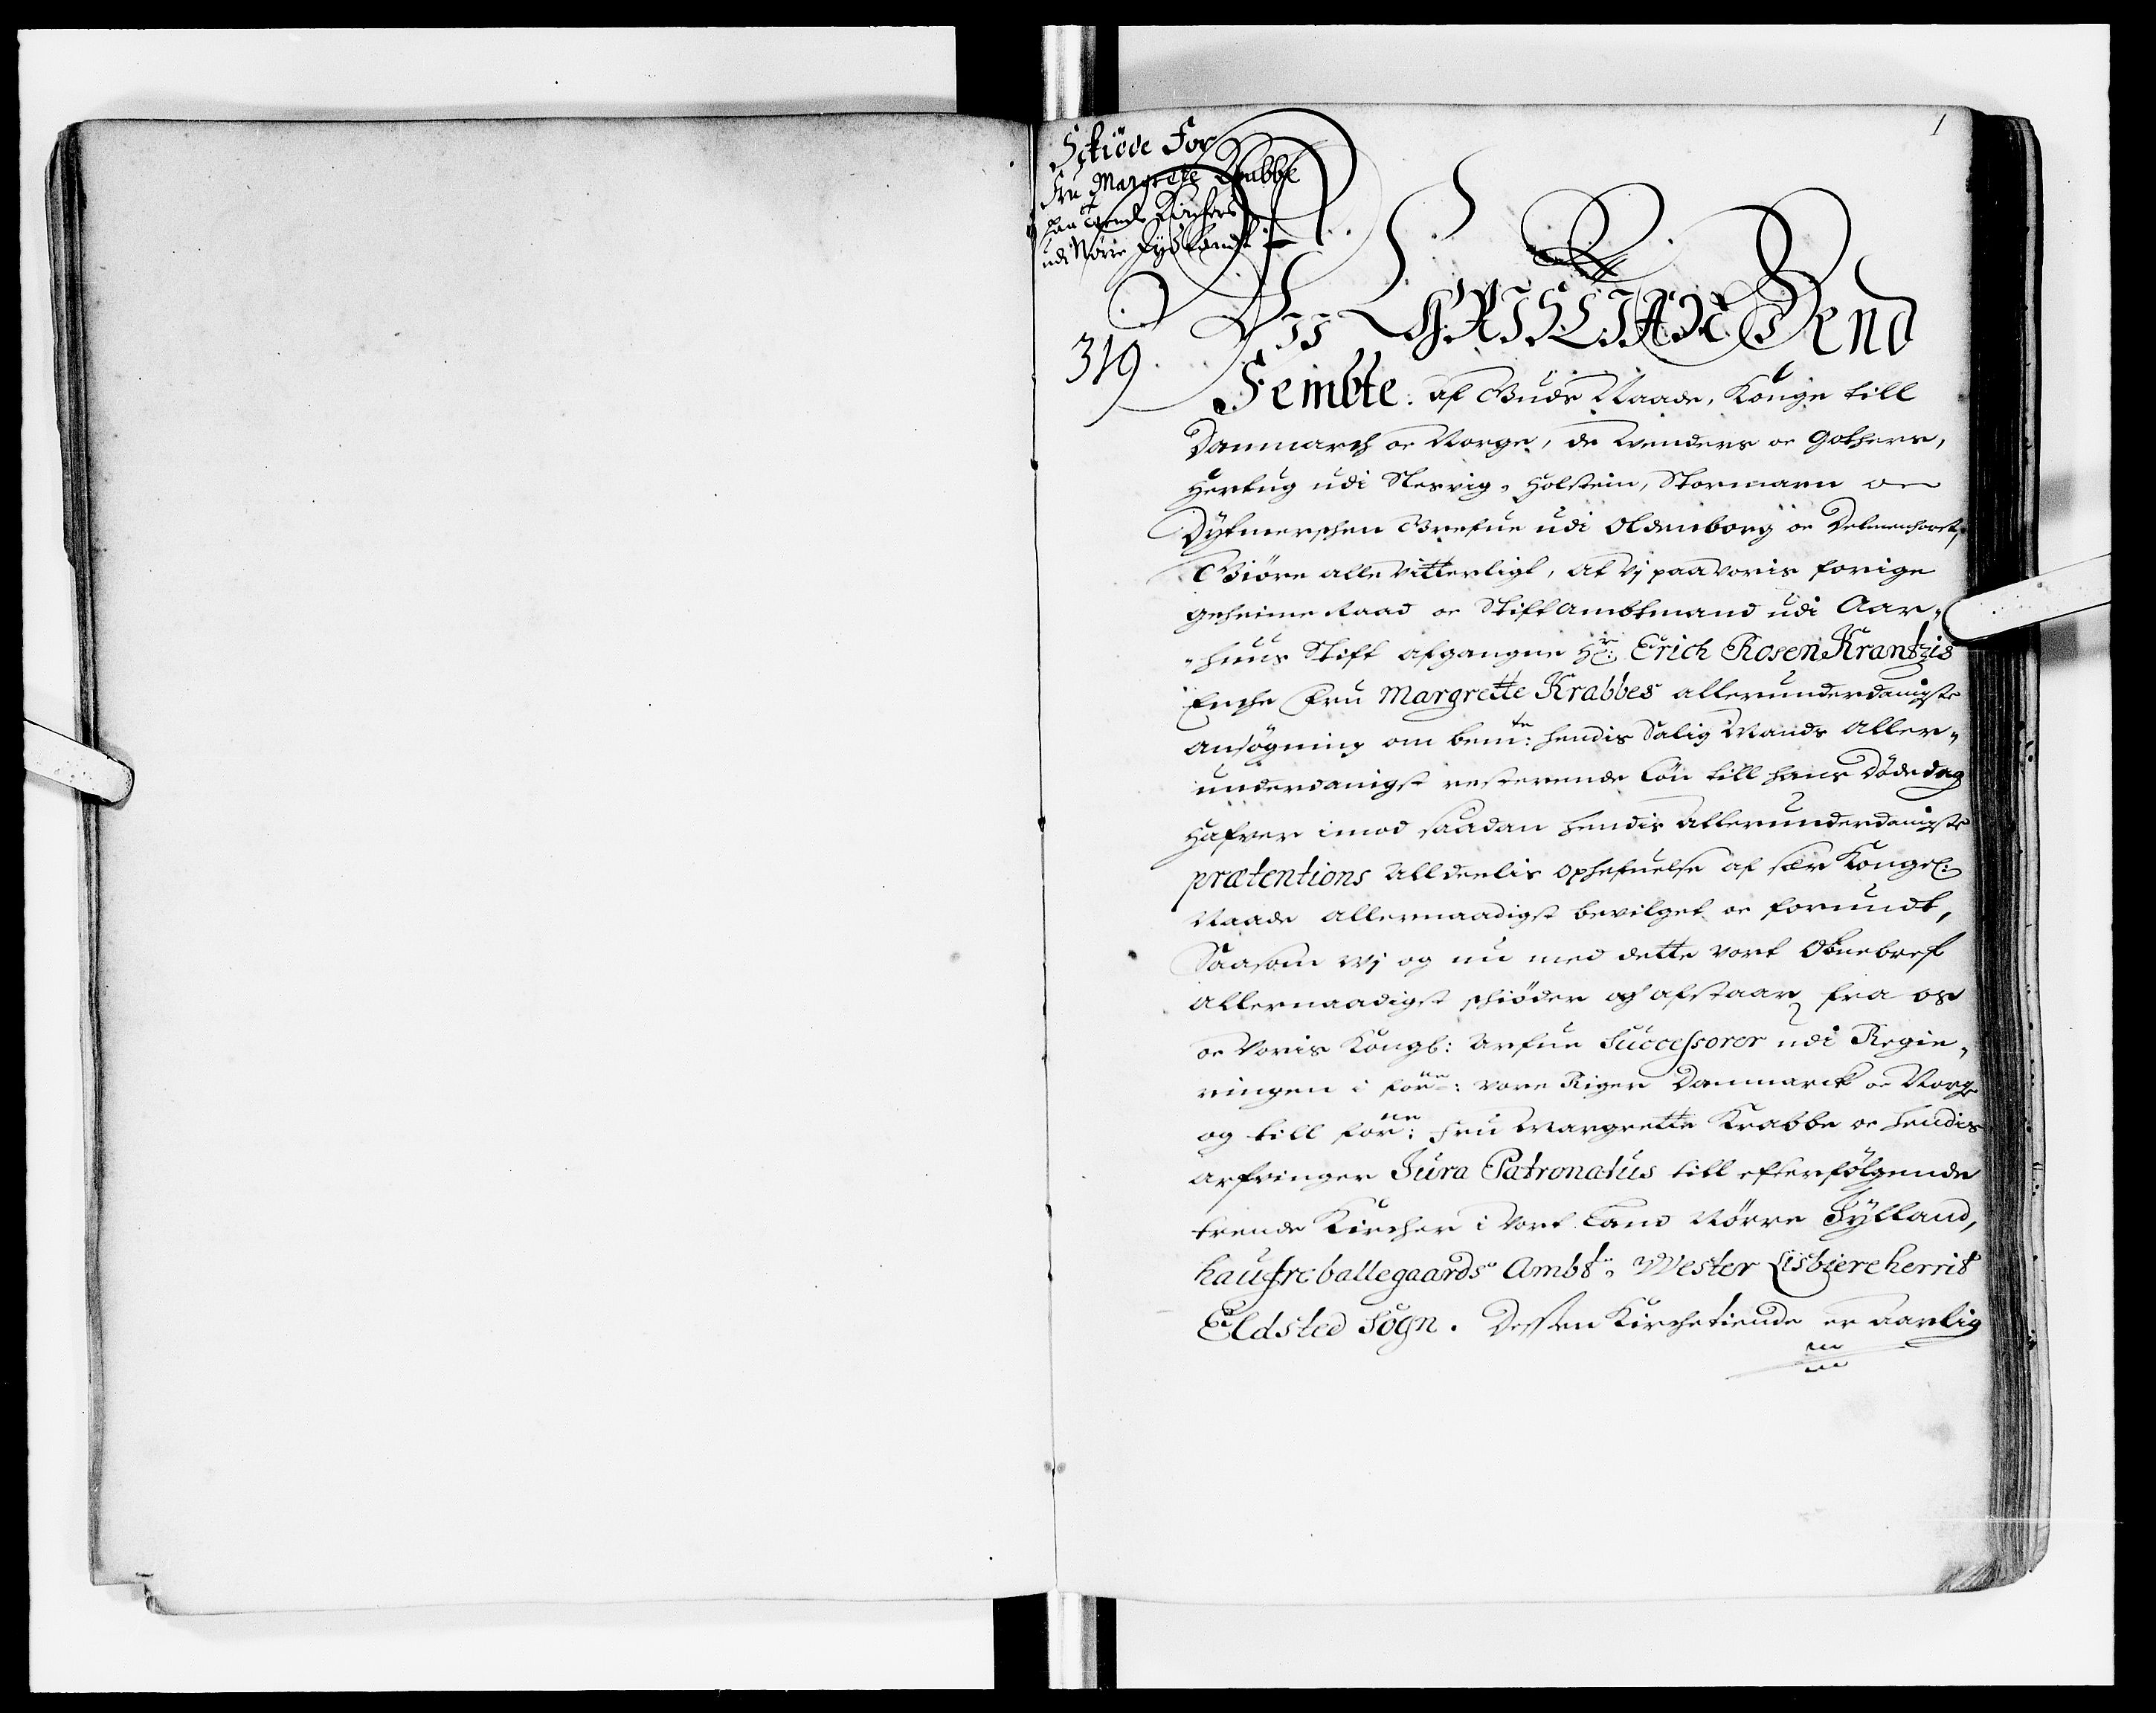 1
Skiöde For
Fru Margrete Krabbe
paa trende Kircher
udi Nörre Jydtland
319
Vii CHRISTIAN Dend
Fembte. af Guds Naade, Konge till
Danmarch oc Norge, de Wenders oc Gothers,
Hertug udi Slesvig, Holstein, Stormarn oc
Dytmerschen Grefue udi Oldenborg oc Delmenhorst,
Giöre alle Vitterligt, at Vj paa Voris forige
geheime Raad oc Stift Ambtmand udi Aar„
„huus Stift afgangne Hr: Erich RosenKrantzis
Enche Fru Margrette Krabbes allerunderdanigste
ansögning om bemte: hendis Salig Mands Aller„
underdanigst resterende Lön till hans Döde dag
Hafver imod saadan hendis allerunderdanigste
prætentions Alldeelis ophefuelse af sær Kongel:
Naade allernaadigst bevilget oc forundt,
Saasom Wj og nu med dette vort Obnebref
Allernaadigst schiöder och afstaar fra os
oc Voris Kongl: Arfue Successorer udi Regie„
ringen i forne: vore Riger Danmarck oc Norge
og till forne: Fru Margrette Krabbe oc hendis
Arfvinger Jura Patronatus till efterfölgende
trende Kircher i vort Land Nörre Jylland,
haufreballegaards Ambt, Wester Lisbiereherrit
Eldsted Sogn. Dessen Kirchetiende er Aarlig